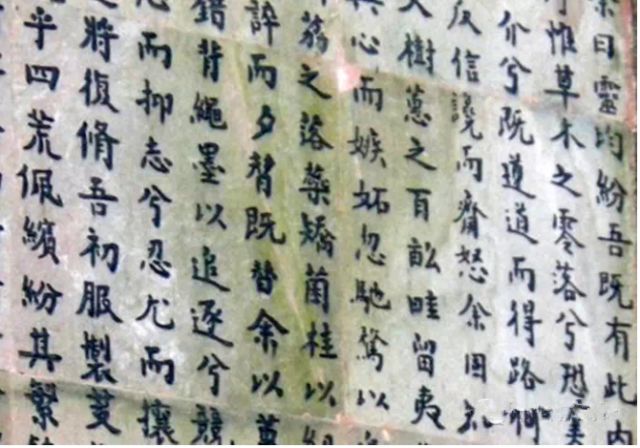 曰靈均紛吾既有此内
惟草木之零落兮恐美
介兮既遵道而得路何
反信讒而齋怒余固知
樹蕙之百畝畦留夷
心而嫉妬忽馳騖以
荔之落蘂矯菌桂以紉
誶而夕替既替余以蕙
錯背繩墨以追逐兮競
心而抑志兮忍尤而攘
將復脩吾初服製芰
乎四荒佩繽紛其繁